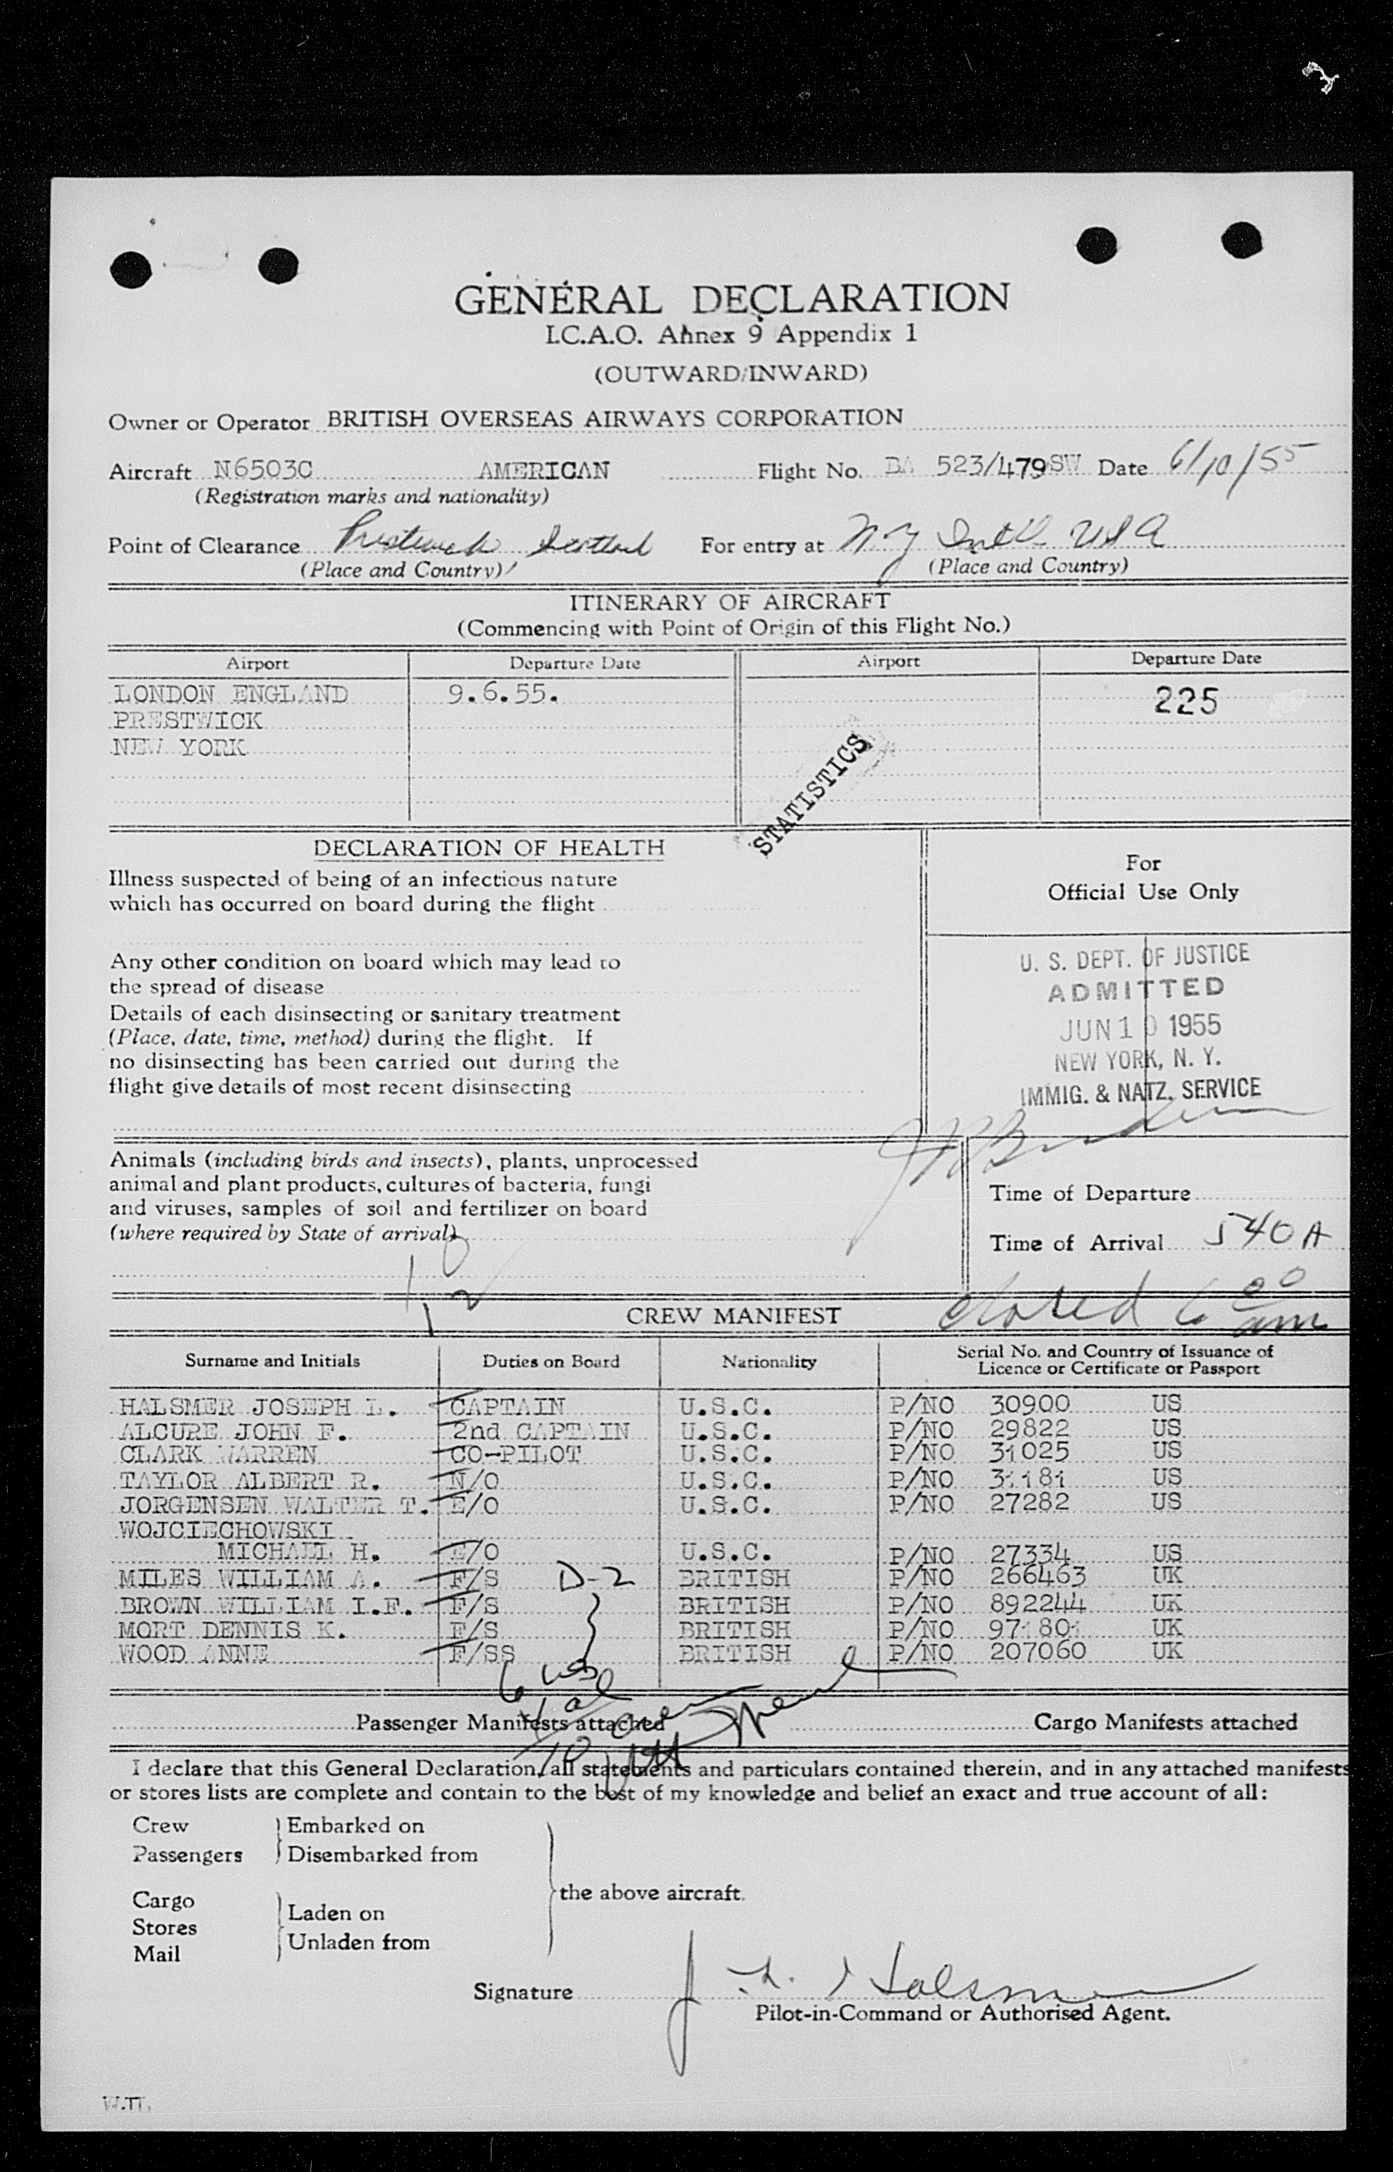 GENERAL DECLARATION
I.C.A.O. Annex 9 Appendix 1
(OUTWARD/INWARD)
Owner or Operator BRITISH OVERSEAS AIRWAYS CORPORATION
Aircraft N6503C AMERICAN Flight No. BA 523/479SW Date 6/10/55
(Registration marks and nationality)
Point of Clearance Prestwick Scotland For entry at N.Y Int'l USA
(Place and Country) (Place and Country)
ITINERARY OF AIRCRAFT
(Commencing with Point of Origin of this Flight No.)
Airport Departure Date Airport Departure Date
LONDON ENGLAND 9.6.55. 225
PRESTWICK
NEW YORK
STATISTICS
DECLARATION OF HEALTH
Illness suspected of being of an infectious nature
which has occurred on board during the flight
Any other condition on board which may lead to
the spread of disease
Details of each disinsecting or sanitary treatment
(Place, date, time, method) during the flight. If
no disinsecting has been carried out during the
flight give details of most recent disinsecting
For
Official Use Only
U. S. DEPT. OF JUSTICE
ADMITTED
JUN 10 1955
NEW YORK, N. Y.
IMMIG. & NATZ. SERVICE
Animals (including birds and insects), plants, unprocessed
animal and plant products, cultures of bacteria, fungi
and viruses, samples of soil and fertilizer on board
(where required by State of arrival)
Time of Departure
Time of Arrival 540 A
closed 6 00 am
CREW MANIFEST
Surname and Initials Duties on Board Nationality Serial No. and Country of Issuance of
Licence or Certificate or Passport
HALSMER JOSEPH L. CAPTAIN U.S.C. P/NO 30900 US
ALCURE JOHN F. 2nd CAPTAIN U.S.C. P/NO 29822 US
CLARK WARREN CO-PILOT U.S.C. P/NO 31025 US
TAYLOR ALBERT R. N/O U.S.C. P/NO 31181 US
JORGENSEN WALTER T. E/O U.S.C. P/NO 27282 US
WOJCIECHOWSKI
MICHAEL H. E/O U.S.C. P/NO 27334 US
MILES WILLIAM A. F/S D-2 BRITISH P/NO 266463 UK
BROWN WILLIAM I.F. F/S BRITISH P/NO 892244 UK
MORT DENNIS K. F/S BRITISH P/NO 971801 UK
WOOD ANNE F/SS BRITISH P/NO 207060 UK
6 usc
Passenger Manifests attached Cargo Manifests attached
I declare that this General Declaration, all statements and particulars contained therein, and in any attached manifests
or stores lists are complete and contain to the best of my knowledge and belief an exact and true account of all:
Crew Embarked on
Passengers Disembarked from
the above aircraft.
Cargo
Stores Laden on
Mail Unladen from
Signature J. L. Halsmer
Pilot-in-Command or Authorised Agent.